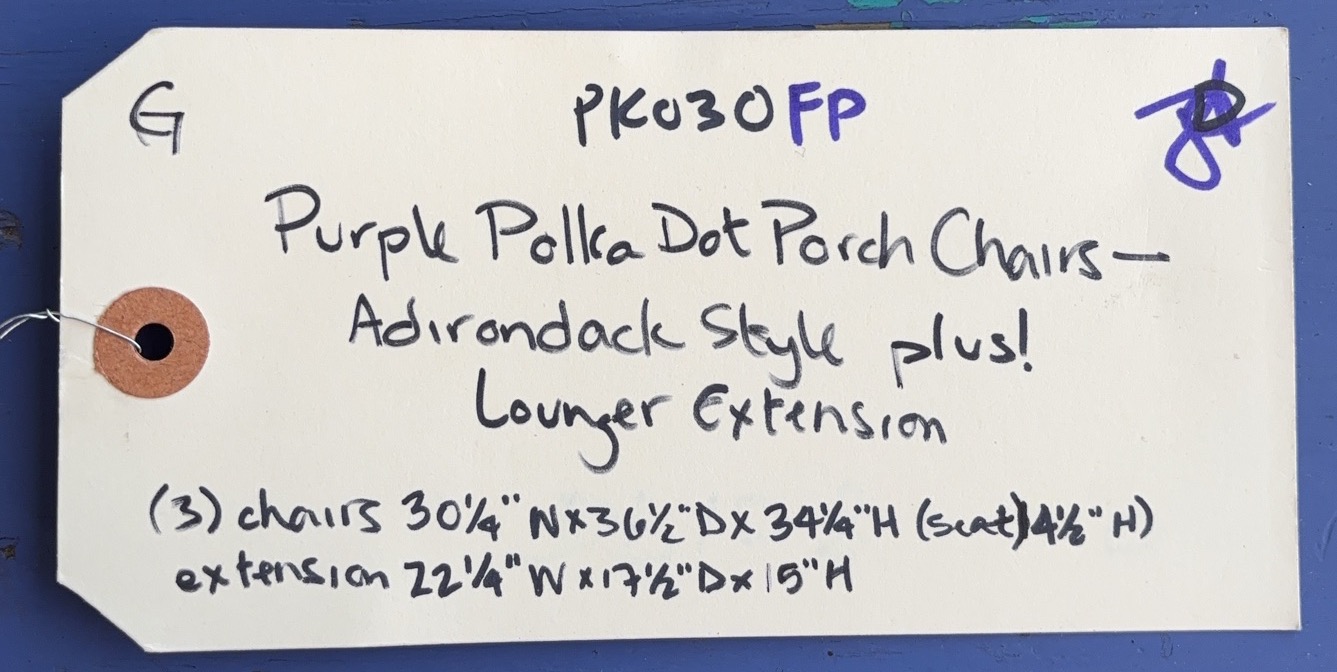 G PK030FP D
Purple Polka Dot Porch Chairs—
Adirondack Style plus!
Lounger Extension
(3) chairs 30 1/4" W x 36 1/2" D x 34 1/4" H (seat) 14 1/2" H)
extension 22 1/4" W x 17 1/2" D x 15" H